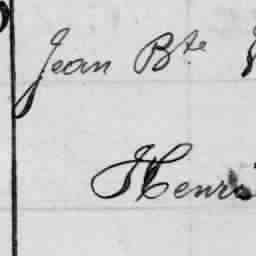 Jean Bte
Henri